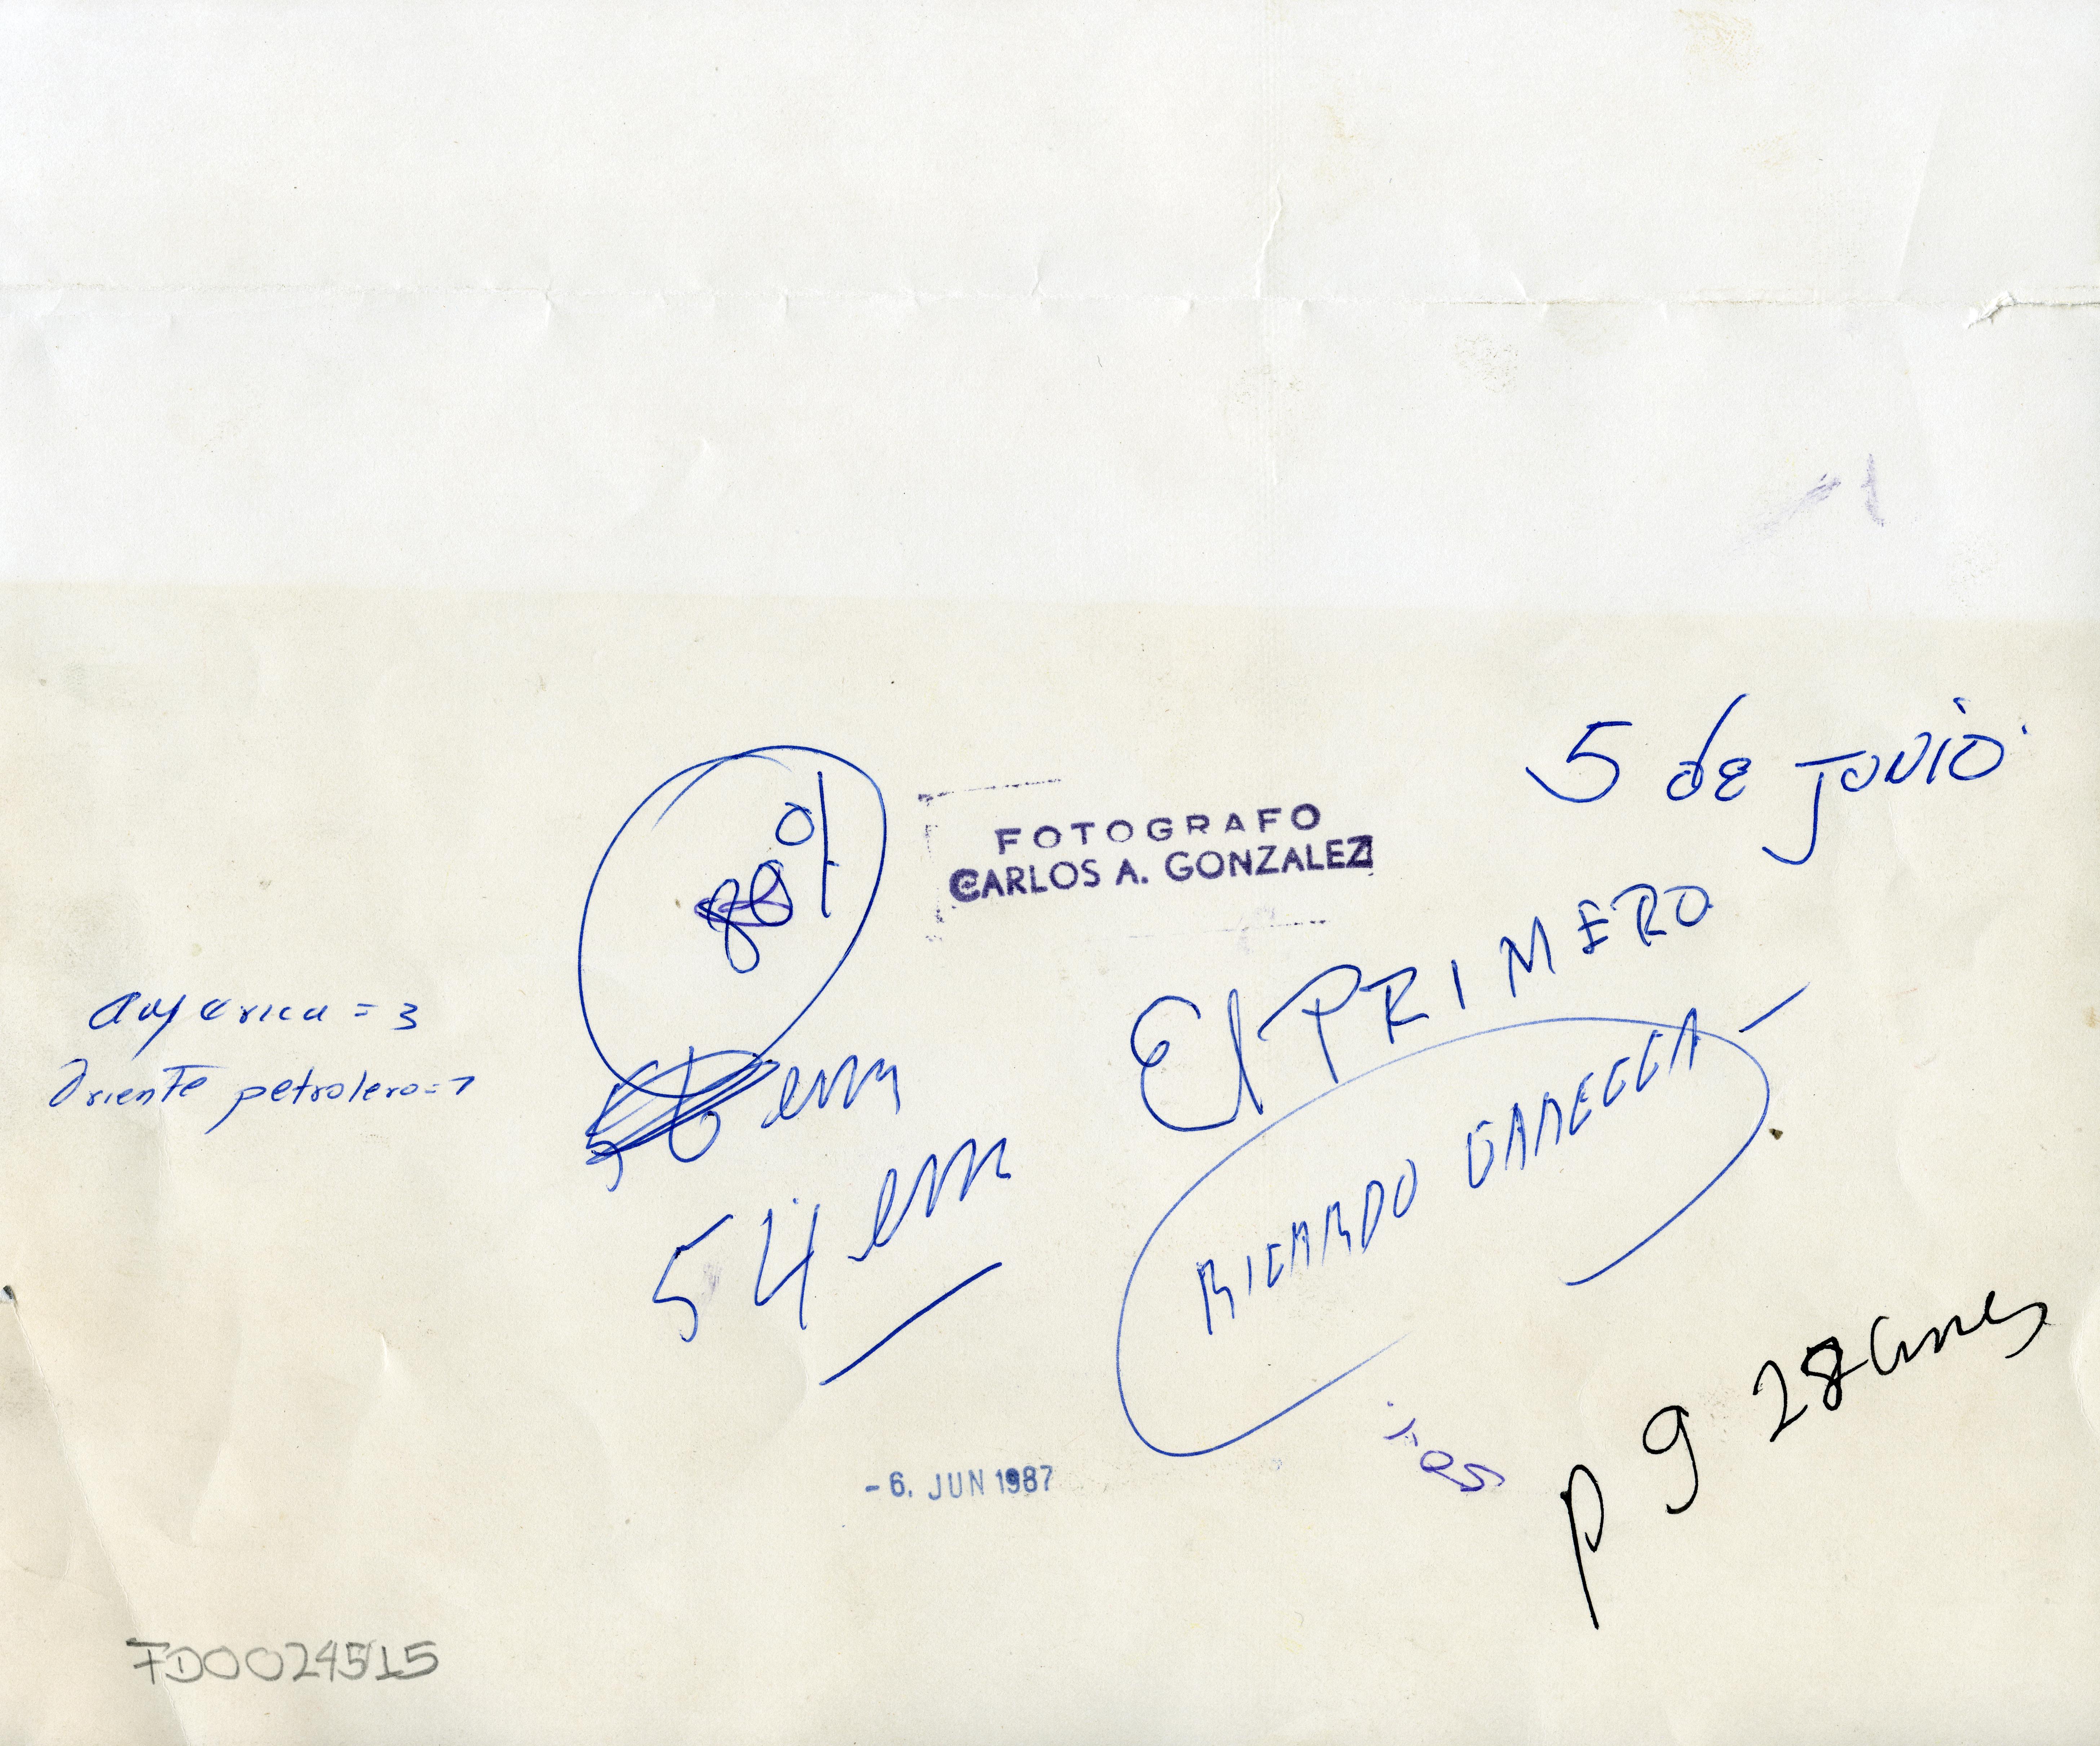 5 de junio
80%
FOTOGRAFO
CARLOS A. GONZALEZ
El PRIMERO
América = 3
Oriente petrolero = 1
em
54 em
RICARDO GARECCA
p 9 28 cms
- 6. JUN 1987
FD0024515